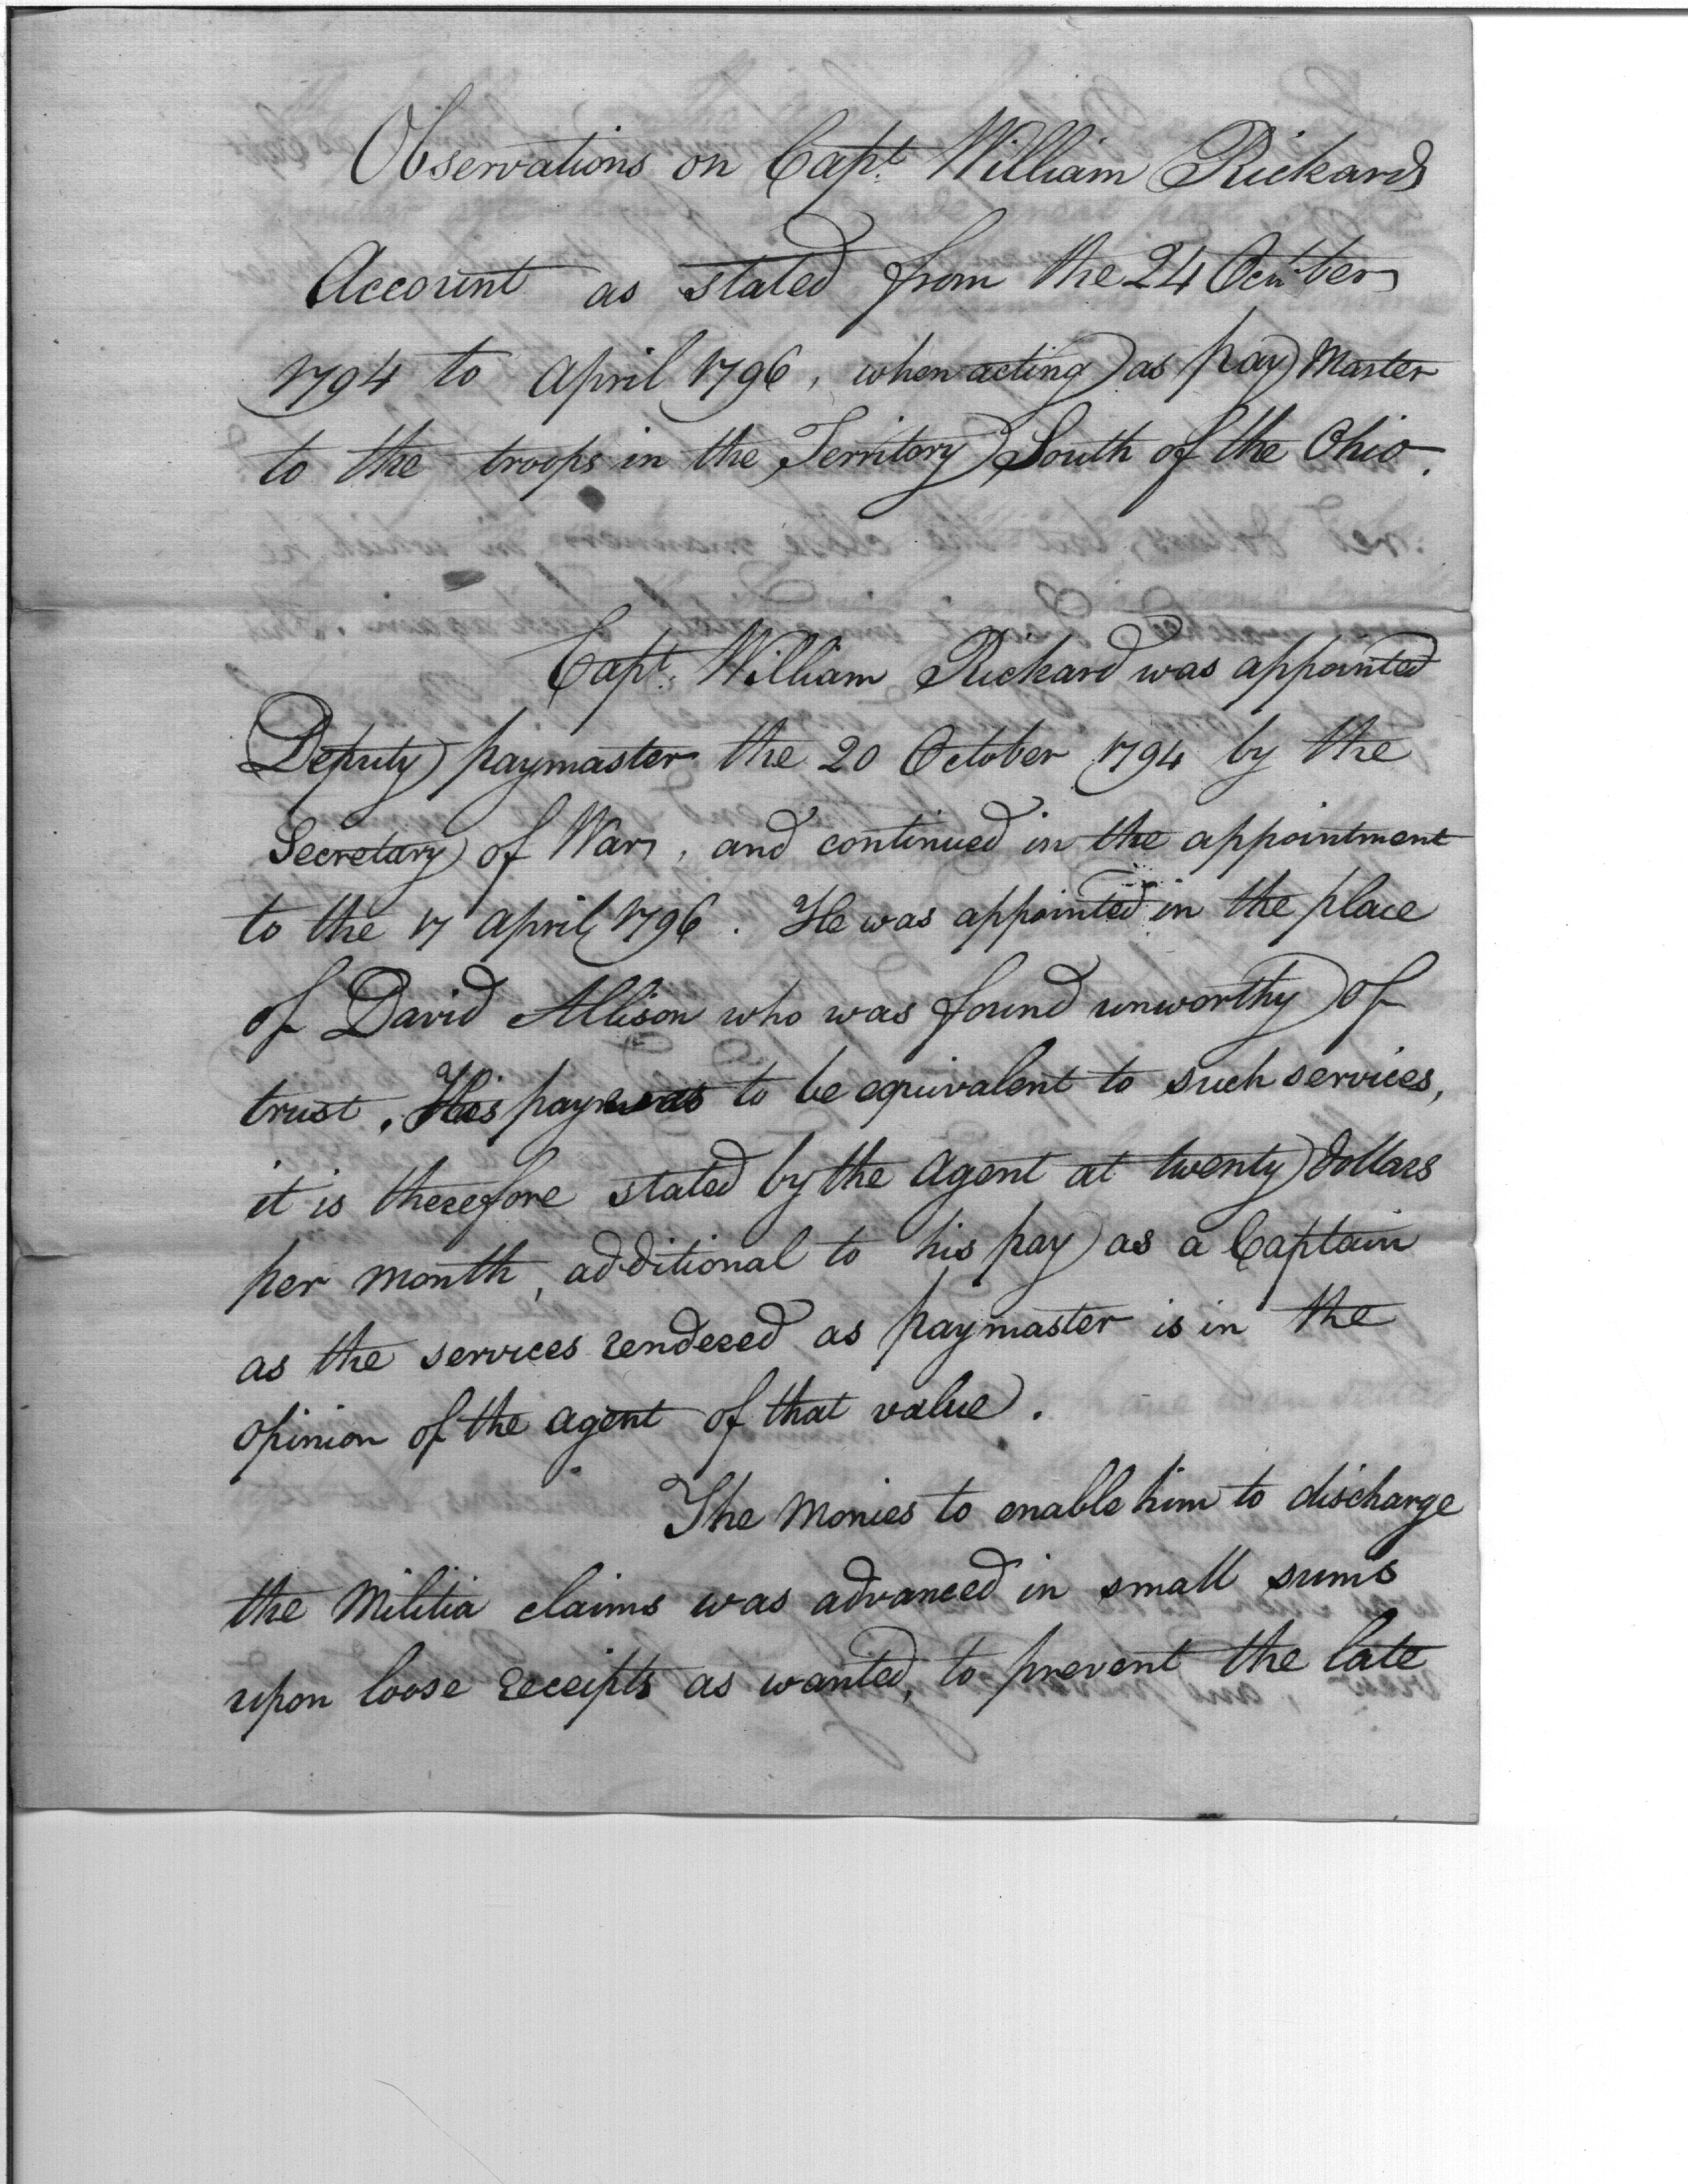 Observations on Capt. William Rickards
Account as stated from the 24 October
1794 to April 1796, when acting as pay Master
to the troops in the Territory South of the Ohio.
Capt. William Rickard was appointed
Deputy paymaster the 20 October 1794 by the
Secretary of War, and continued in the appointment
to the 17 April 1796. He was appointed in the place
of David Allison who was found unworthy of
trust. His pay was to be equivalent to such services,
it is therefore stated by the Agent at twenty dollars
per month, additional to his pay as a Captain
as the services rendered as paymaster is in the
opinion of the agent of that value.
The Monies to enable him to discharge
the Militia claims was advanced in small sums
upon loose receipts as wanted, to prevent the late